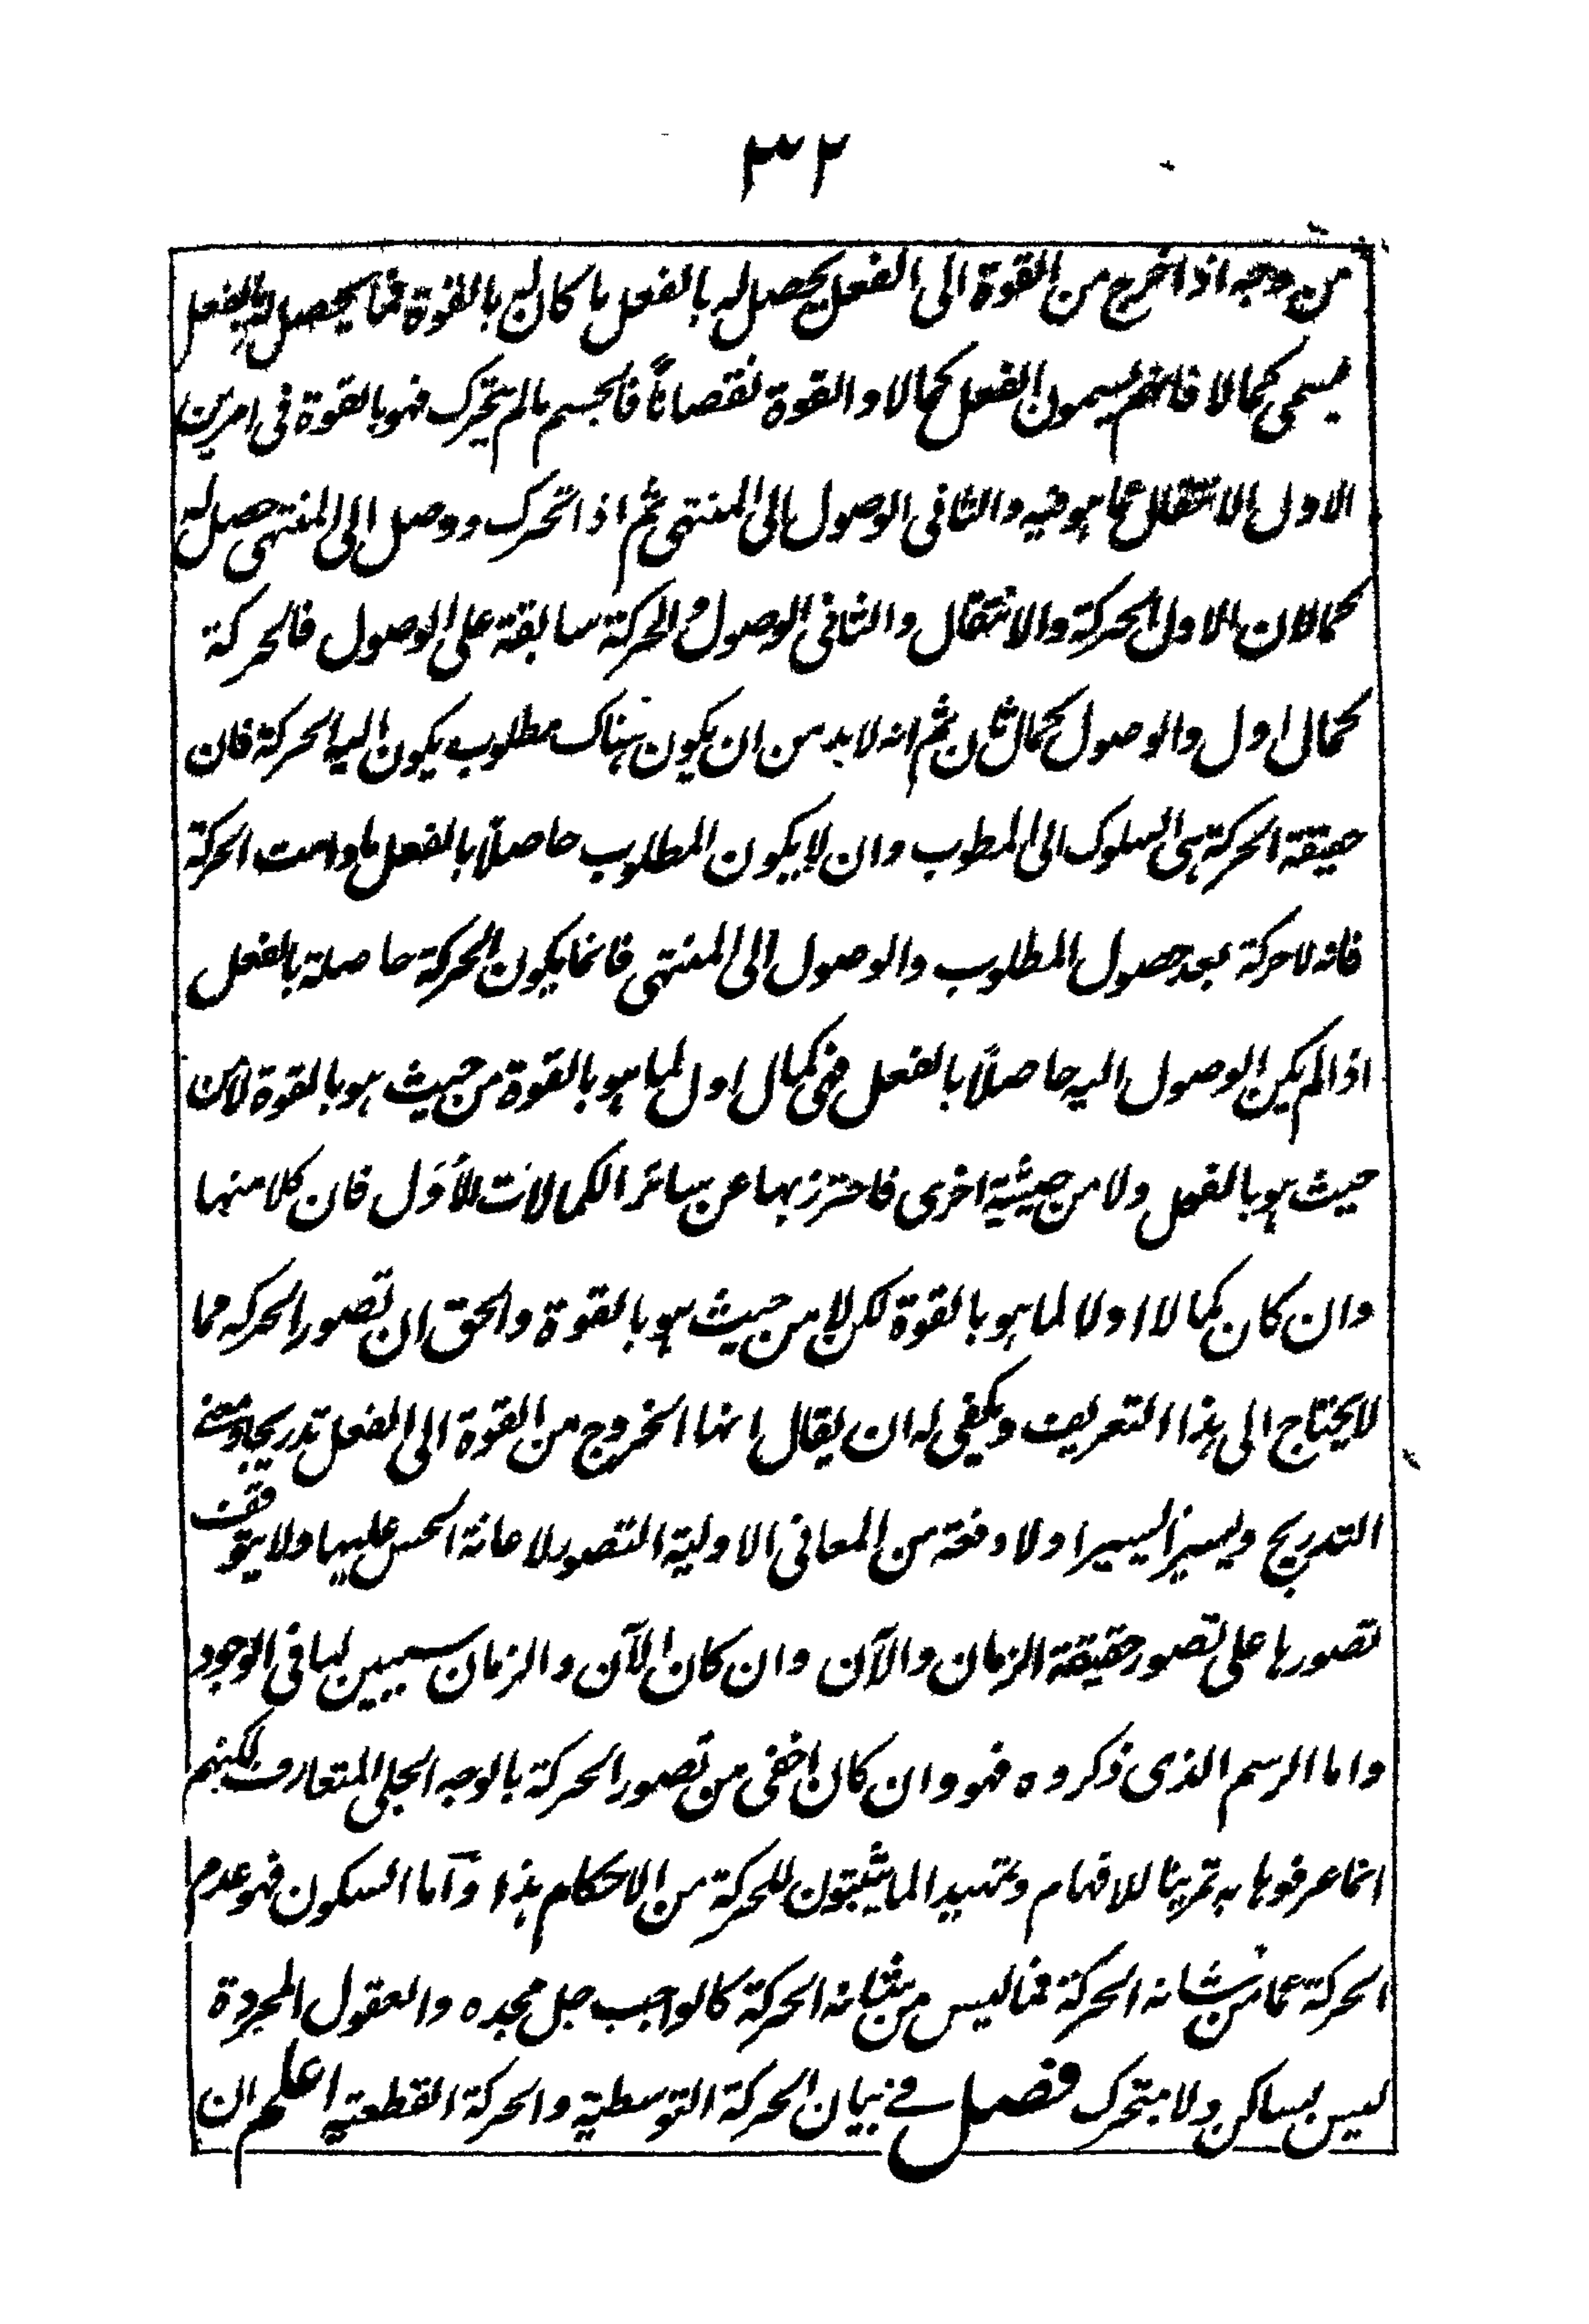 ٣٢
من وجه اذا خرج من القوة الى الفعل يحصل له بالفعل ما كان له بالقوة فما يحصل له بالفعل
يسمى كمالا فانهم يسمون الفعل كمالا والقوة نقصاناً فالجسم ما لم يتحرك فهو بالقوة فى امرين
الاول الانتقال عما هو فيه والثانى الوصول الى المنتهى ثم اذا تحرك ووصل الى المنتهى حصل له
كمالان الاول الحركة والانتقال والثانى الوصول والحركة سابقة على الوصول فالحركة
كمال اول والوصول كمال ثان ثم انه لا بد من ان يكون هناك مطلوب يكون اليه الحركة فان
حقيقة الحركة هى السلوك الى المطوب وان لا يكون المطلوب حاصلاً بالفعل ما دامت الحركة
فانه لا حركة بعد حصول المطلوب والوصول الى المنتهى فانما يكون الحركة حاصلة بالفعل
اذا لم يكن الوصول اليه حاصلاً بالفعل فهى كمال اول لما هو بالقوة من حيث هو بالقوة لا من
حيث هو بالفعل ولا من حيثية اخرى فاحترز بها عن سائر الكمالات الأُوَل فان كلا منها
وان كان كمالا اولا لما هو بالقوة لكن لا من حيث هو بالقوة والحق ان تصور الحركه مما
لا يحتاج الى هذا التعريف ويكفى له ان يقال انها الخروج من القوة الى الفعل تدريجا ومعنے
التدريج ويسيرا يسيرا ولا دفعة من المعانى الاولية التصور لاعانة الحس عليها ولا يتوقف
تصورها على تصور حقيقة الزمان والآن وان كان الآن والزمان سببين لها فى الوجود
واما الرسم الذى ذكروه فهو وان كان اخفى من تصور الحركة بالوجه الجلى المتعارف لكنهم
انما عرفوها به تمرينا للافهام وتمهيدا لما يثبتون للحركة من الاحكام هذا وآما السكون فهو عدم
الحركة عما من شانه الحركة فما ليس من شانه الحركة كالواجب جل مجده والعقول المجردة
ليس بساكن ولا متحرك فصل فے بيان الحركة التوسطية والحركة القطعية اعلم ان